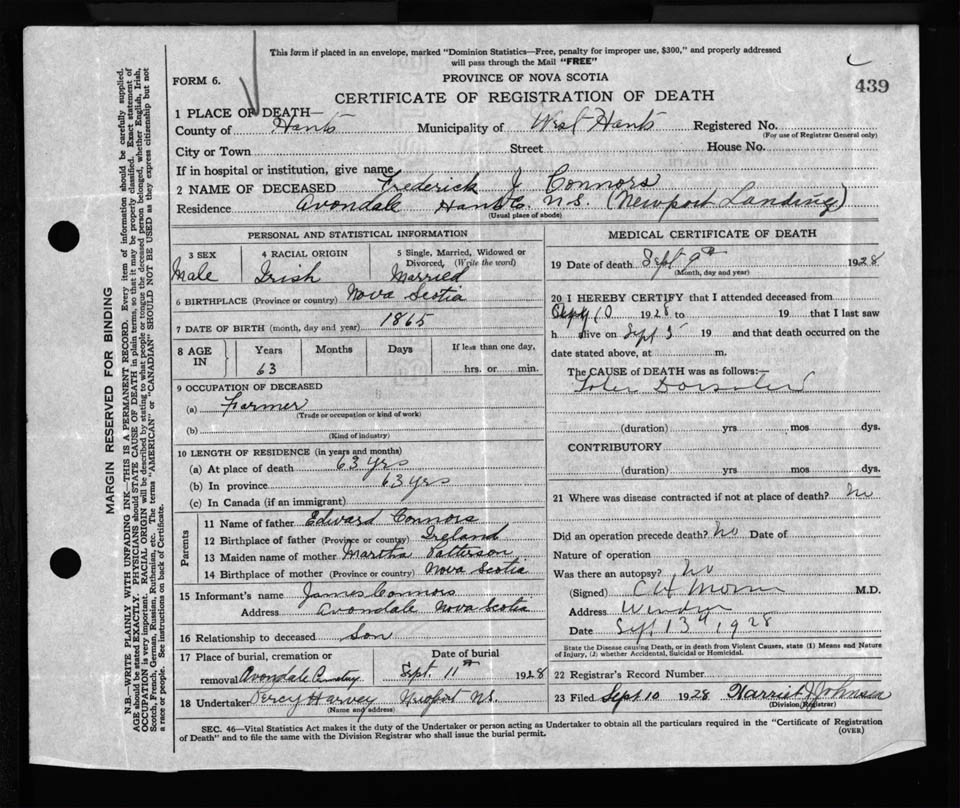 This form if placed in an envelope, marked "Dominion Statistics—Free, penalty for improper use, $300," and properly addressed
will pass through the Mail "FREE"
FORM 6.
PROVINCE OF NOVA SCOTIA
439
CERTIFICATE OF REGISTRATION OF DEATH
1 PLACE OF DEATH—
County of Hants Municipality of West Hants Registered No.
(For use of Registrar General only)
City or Town Street House No.
If in hospital or institution, give name
2 NAME OF DECEASED Frederick J Connors
Residence Avondale Hants Co. N.S. (Newport Landing)
(Usual place of abode)
PERSONAL AND STATISTICAL INFORMATION
3 SEX 4 RACIAL ORIGIN 5 Single, Married, Widowed or
Divorced, (Write the word)
Male Irish Married
6 BIRTHPLACE (Province or country) Nova Scotia
7 DATE OF BIRTH (month, day and year) 1865
8 AGE IN Years Months Days If less than one day,
63 hrs. or min.
9 OCCUPATION OF DECEASED
(a) Farmer
(Trade or occupation or kind of work)
(b)
(Kind of industry)
10 LENGTH OF RESIDENCE (in years and months)
(a) At place of death 63 yrs
(b) In province 63 yrs
(c) In Canada (if an immigrant)
Parents
11 Name of father Edward Connors
12 Birthplace of father (Province or country) Ireland
13 Maiden name of mother Martha Patterson
14 Birthplace of mother (Province or country) Nova Scotia
15 Informant's name James Connors
Address Avondale Nova Scotia
16 Relationship to deceased Son
17 Place of burial, cremation or Date of burial
removal Avondale Cemetery Sept. 11th 1928
18 Undertaker Percy Harvey Newport N.S.
(Name and address)
MEDICAL CERTIFICATE OF DEATH
19 Date of death Sept 9th 1928
(Month, day and year)
20 I HEREBY CERTIFY that I attended deceased from
10 1928 to 19 that I last saw
h alive on Sept 5 19 and that death occurred on the
date stated above, at m.
The CAUSE of DEATH was as follows:—
(duration) yrs mos dys.
CONTRIBUTORY
(duration) yrs mos dys.
21 Where was disease contracted if not at place of death? no
Did an operation precede death? no Date of
Nature of operation
Was there an autopsy? no
(Signed) M.D.
Address Windsor
Date Sept 13th 1928
State the Disease causing Death, or in death from Violent Causes, state (1) Means and Nature
of Injury, (2) whether Accidental, Suicidal or Homicidal.
22 Registrar's Record Number
23 Filed Sept 10 1928 Harriet J Johnson
(Division Registrar)
SEC. 46—Vital Statistics Act makes it the duty of the Undertaker or person acting as Undertaker to obtain all the particulars required in the "Certificate of Registration
of Death" and to file the same with the Division Registrar who shall issue the burial permit. (OVER)
MARGIN RESERVED FOR BINDING
N.B.—WRITE PLAINLY WITH UNFADING INK—THIS IS A PERMANENT RECORD. Every item of information should be carefully supplied.
AGE should be stated EXACTLY. PHYSICIANS should STATE CAUSE OF DEATH in plain terms, so that it may be properly classified. Exact statement of
OCCUPATION is very important. RACIAL ORIGIN will be described by stating to what people or tongue the deceased person belonged, whether English, Irish,
Scotch, French, German, Russian, Ruthenian, etc. The terms "AMERICAN" or "CANADIAN" SHOULD NOT BE USED as they express citizenship but not
a race or people. See instructions on back of Certificate.